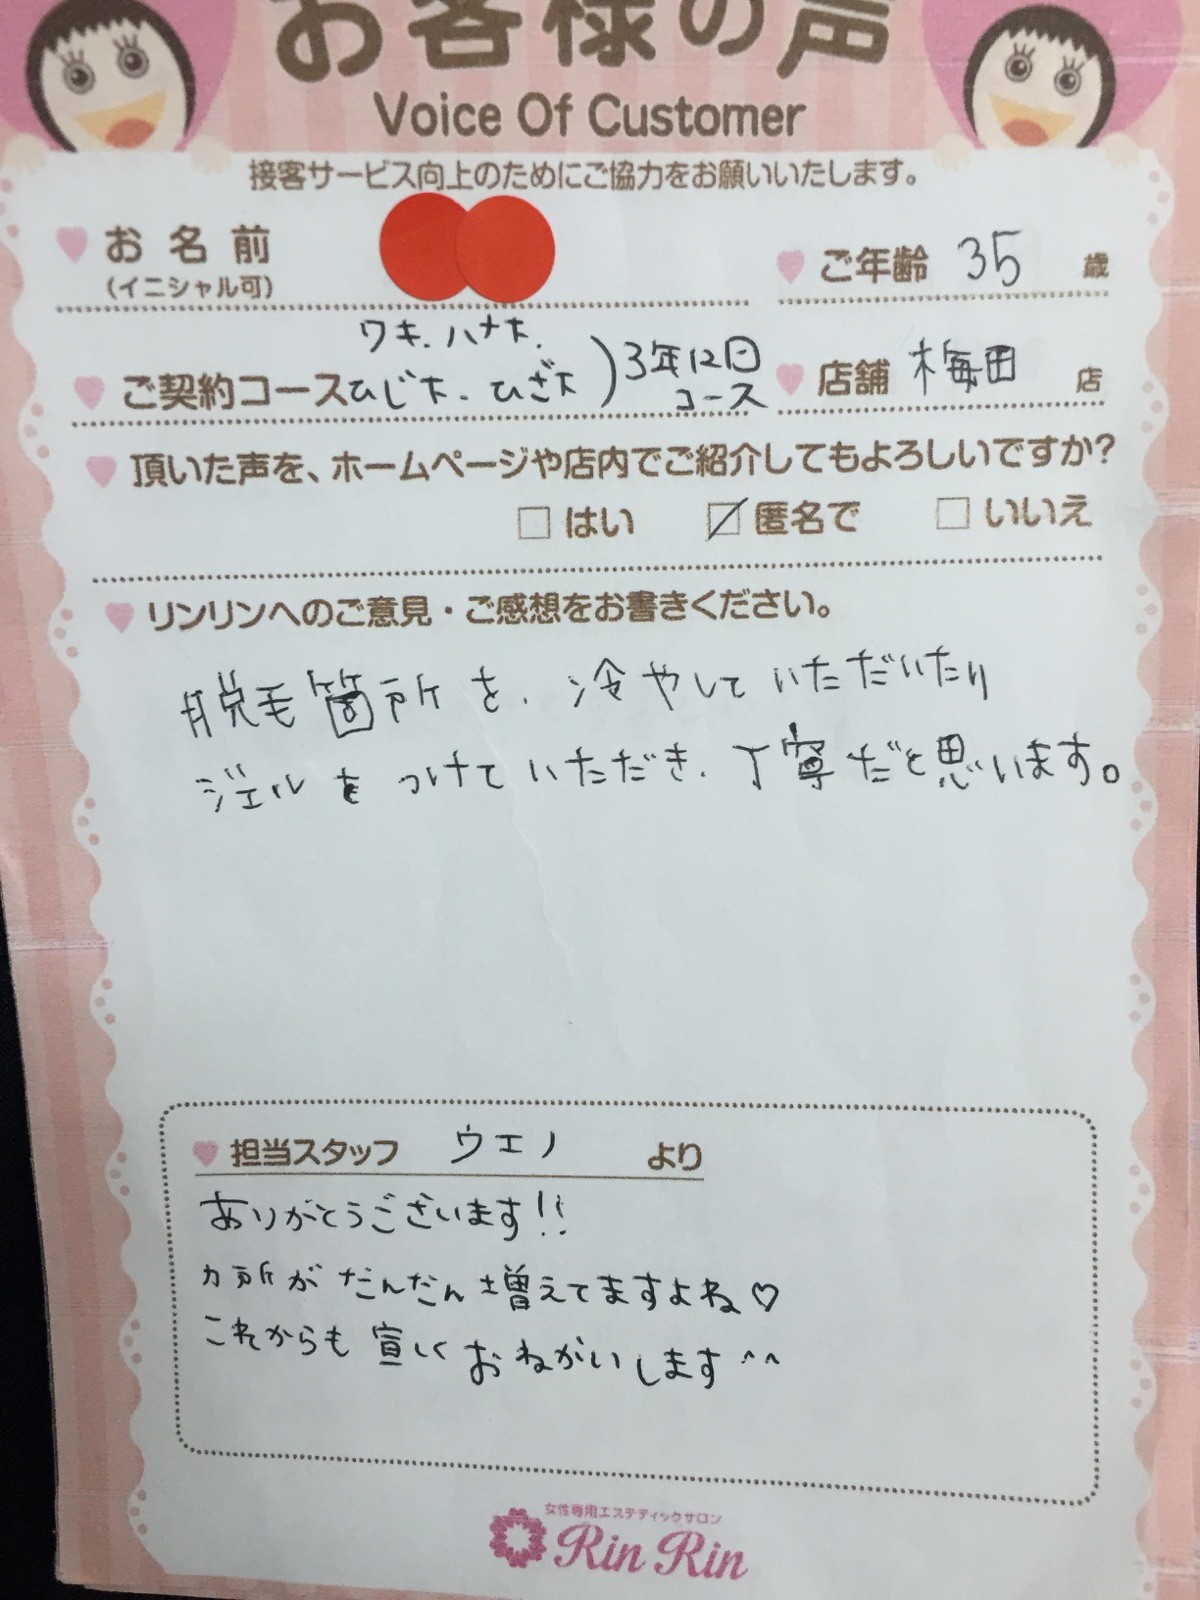 お客様の声
Voice Of Customer
接客サービス向上のためにご協力をお願いいたします。
お名前
(イニシャル可)
ご年齢 35 歳
ワキ、ハナ下、
ご契約コース ひじ下、ひざ下 ) 3年12回コース
店舗 梅田 店
頂いた声を、ホームページや店内でご紹介してもよろしいですか?
はい 匿名で いいえ
リンリンへのご意見・ご感想をお書きください。
脱毛箇所を、冷やしていただいたり
ジェルをつけていただき、丁寧だと思います。
担当スタッフ ウエノ より
ありがとうございます!!
カ所がだんだん増えてますよね♡
これからも宜しくおねがいします^^
女性専用エステティックサロン
Rin Rin